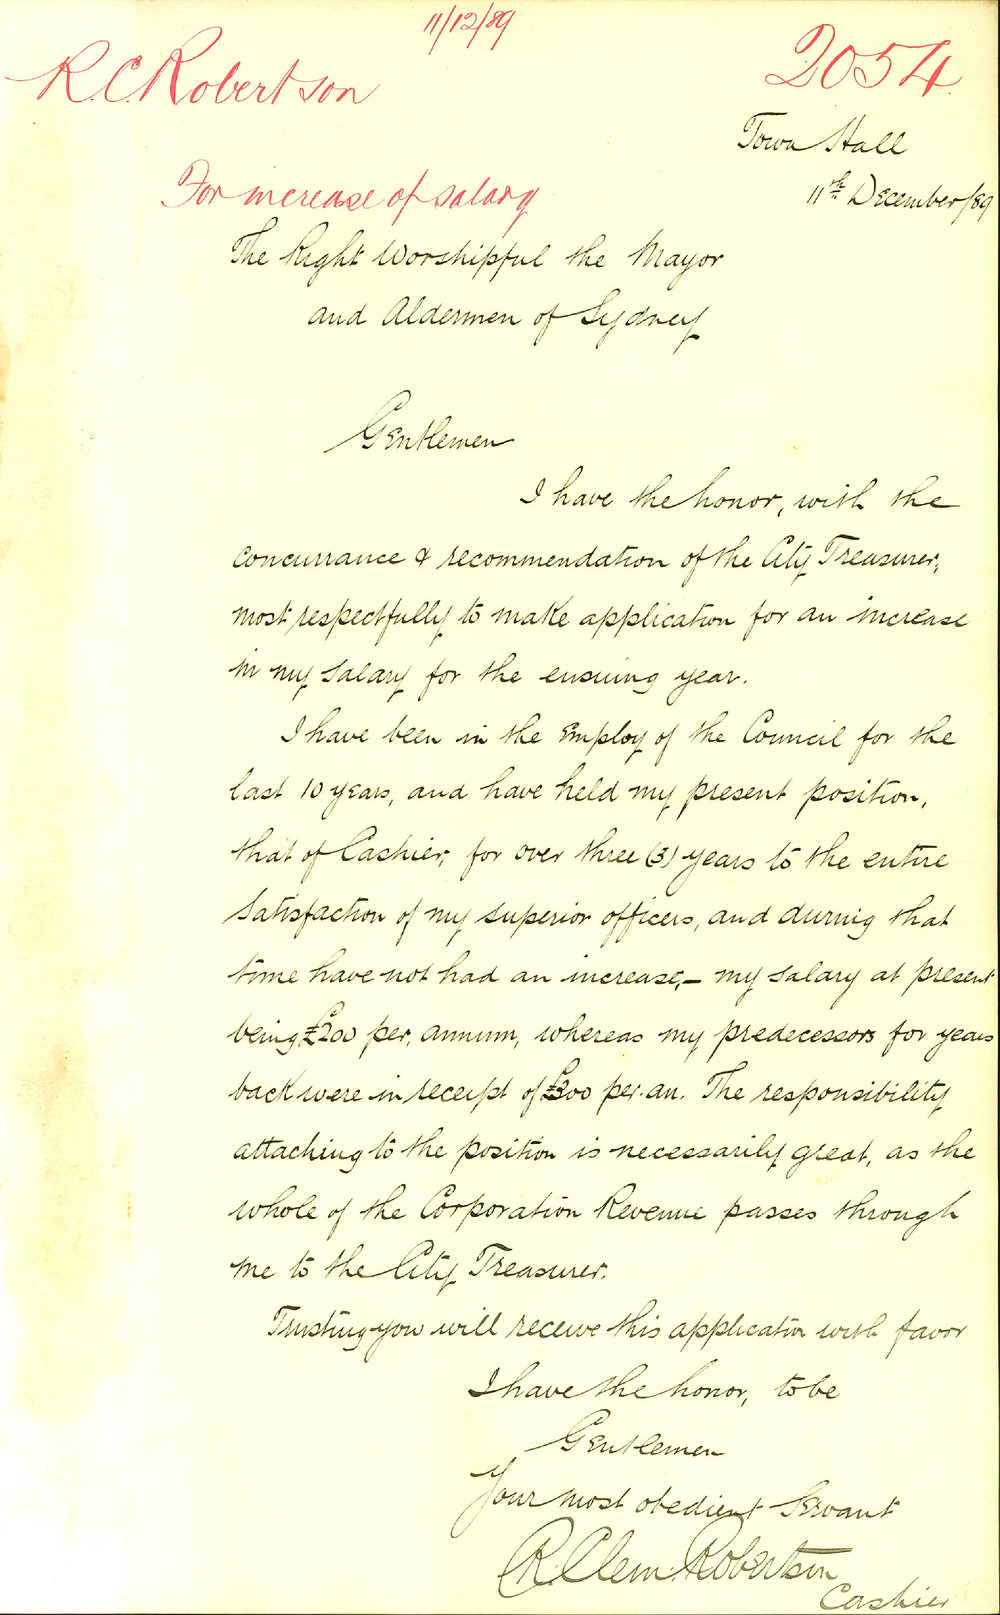 11/12/89
R.C. Robertson
2054
Town Hall
For increase of salary
11th December/89
The Right Worshipful the Mayor
and Aldermen of Sydney
Gentlemen
I have the honor, with the
concurrance & recommendation of the City Treasurer,
most respectfully to make application for an increase
in my salary for the ensuing year.
I have been in the Employ of the Council for the
last 10 years, and have held my present position,
that of Cashier, for over three (3) years to the entire
satisfaction of my superior officers, and during that
time have not had an increase,— my salary at present
being £200 per. annum, whereas my predecessors for years
back were in receipt of £300 per. an. The responsibility
attaching to the position is necessarily great, as the
whole of the Corporation Revenue passes through
me to the City Treasurer.
Trusting you will receive this application with favor
I have the honor, to be
Gentlemen
Your most obedient Servant
R. Clem. Robertson
Cashier